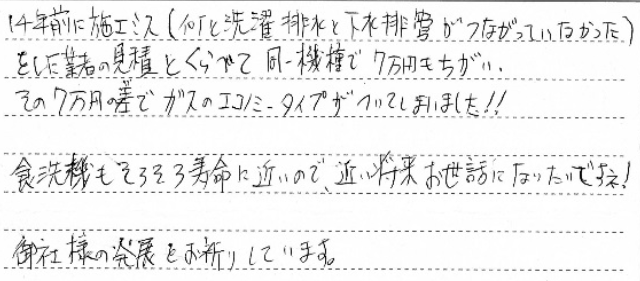 14年前に施工ミス(何と洗濯排水と下水排管がつながっていなかった)
をした業者の見積とくらべて同一機種で7万円もちがい、
その7万円の差でガスのエコノミータイプがついてしまいました!!
食洗機もそろそろ寿命に近いので、近い将来お世話になりたいですネ!
御社様の発展をお祈りしています。